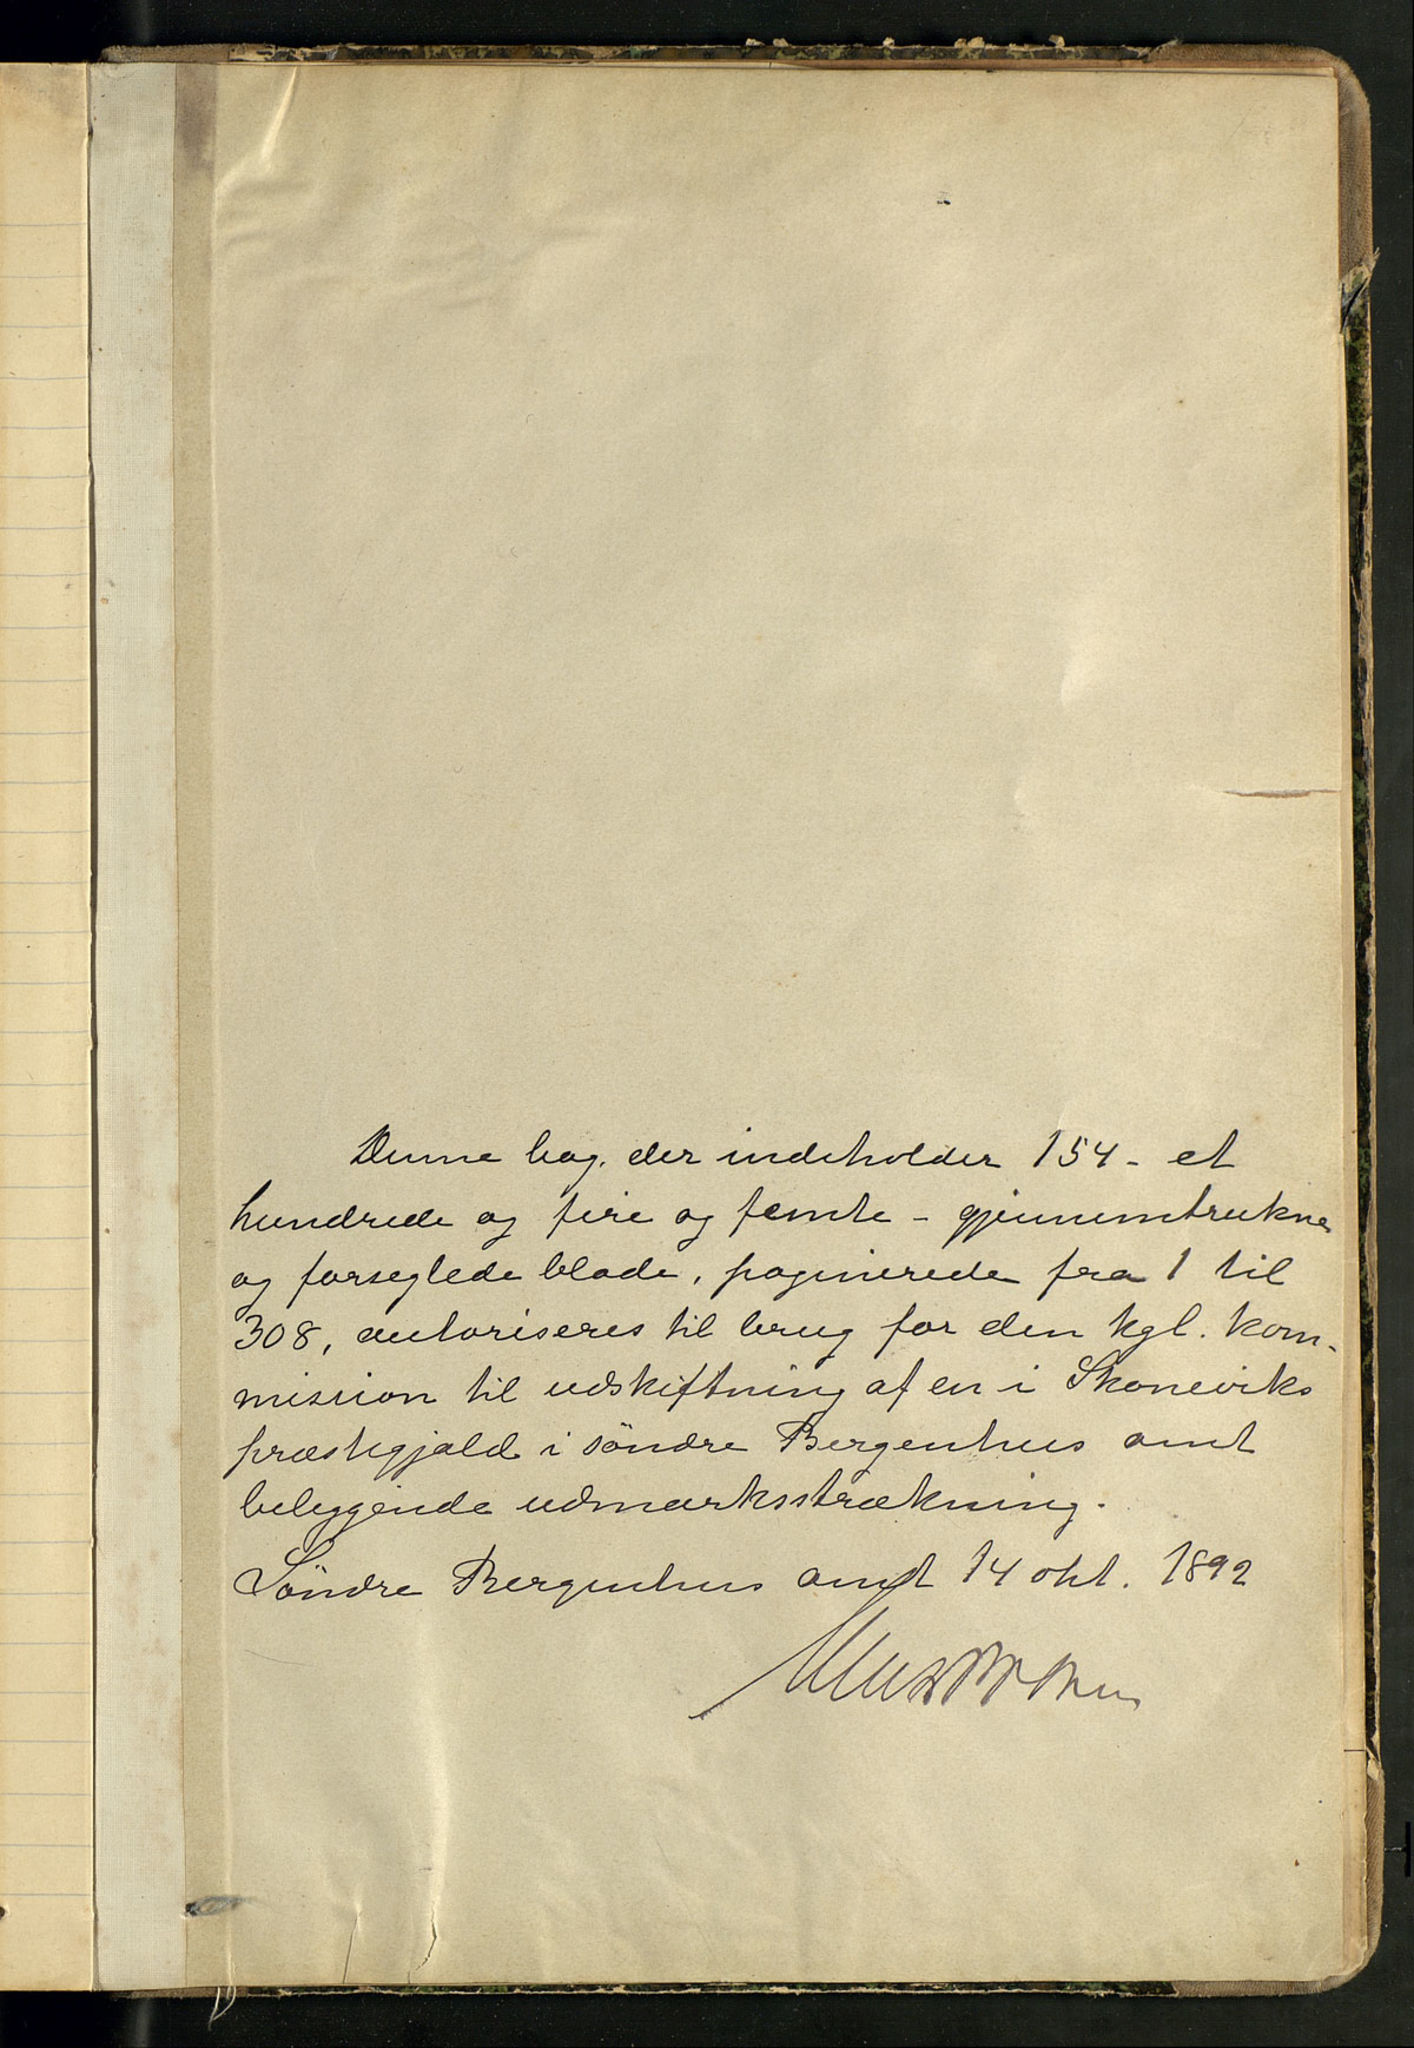 Denne bog, der indeholder 154 - et
hundrede og fire og femte - gjennemtrukne
og forseglede blade, paginerede fra 1 til
308, autoriseres til brug for den kgl. kom-
mission til udskiftning af en i Skoneviks
præstegjæld i söndre Bergenhus amt
beliggende udmarksstrækning.
Söndre Bergenhus amt 14 okt. 1892